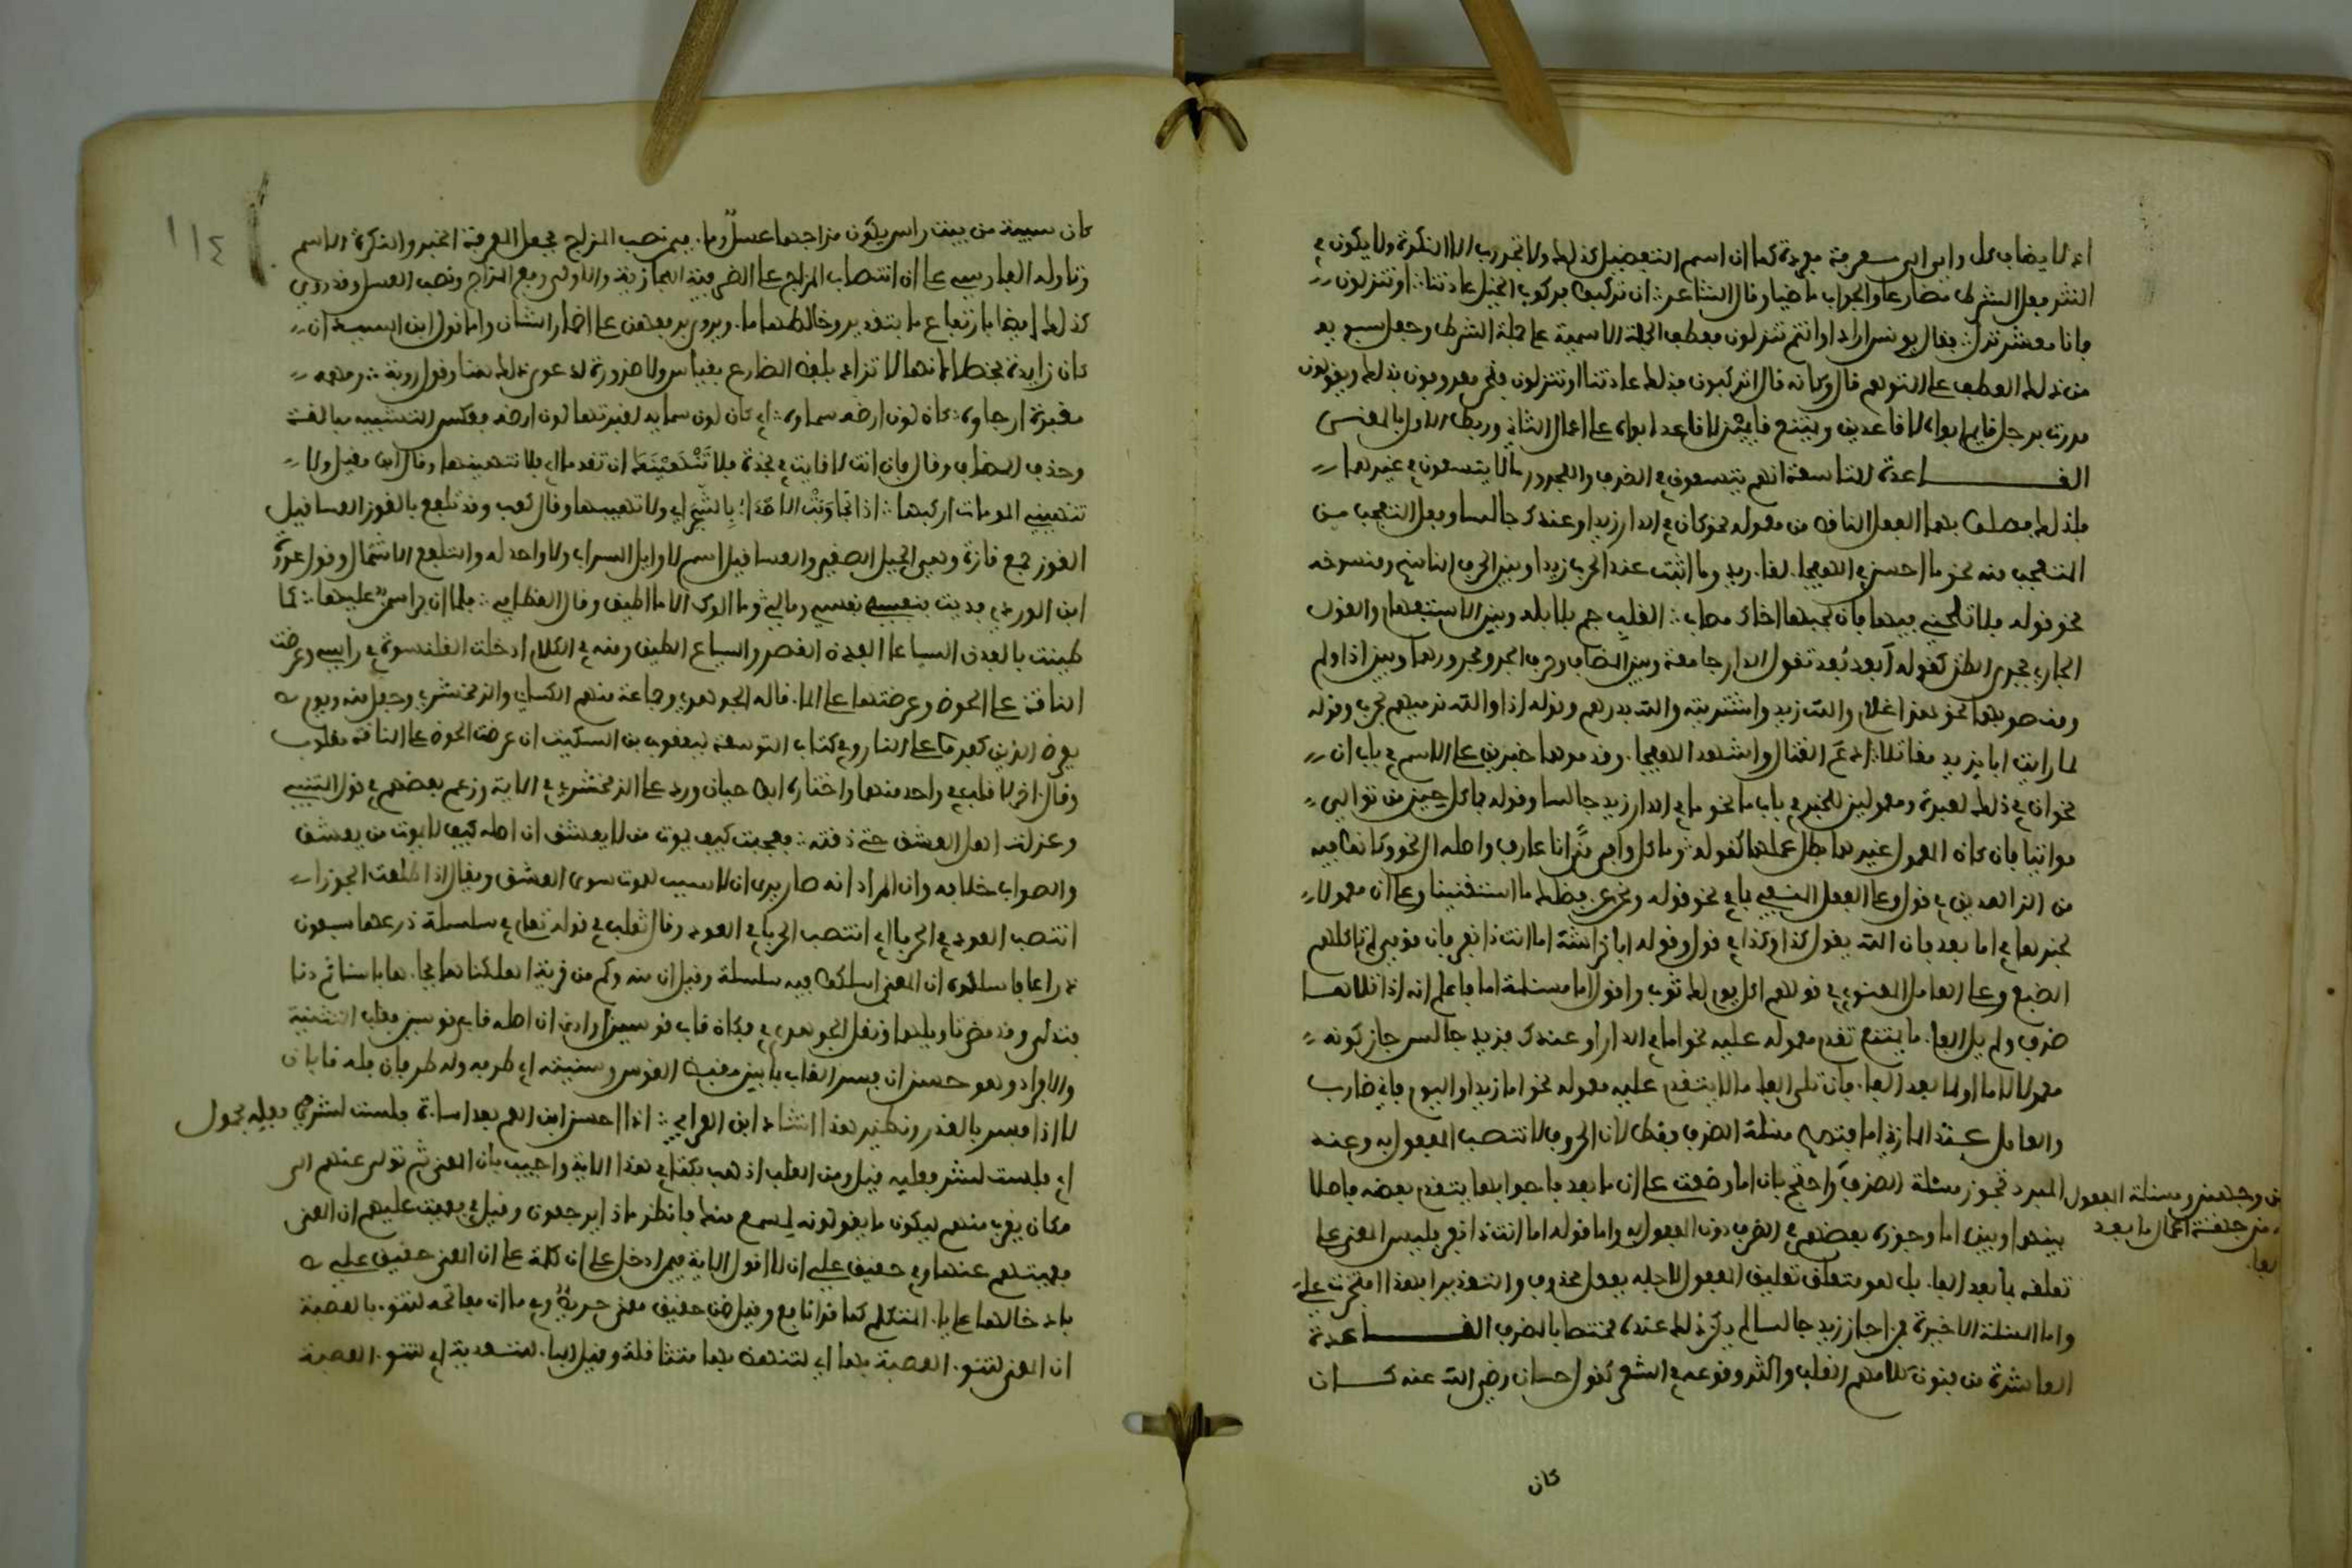 انه لا يضاف كل واي الى معرفة مفردة كما ان اسم التفضيل كذلك ولا تجر رب الا النكرة ولا يكون في
النثر فعل الشرط مضارعا والجواب ماضيا وقال الشاعر ان تركبوا فركوب الخيل عادتنا او تنزلون
فانا معشر نزل فقال يونس اراد او انتم تنزلون فعطف الجملة الاسمية على جملة الشرط وجعل سيبويه
من ذلك العطف على التوهم قال وكانه قال اتركبون فذلك عادتنا او تنزلون فنحن معروفون بذلك ويقولون
مررت برجل قايم ابواه لا قاعدين ويمتنع قايمين لا قاعد ابواه على اعمال الثاني وربط الاول بالمعنى
القاعدة التاسعة انهم يتسعون في الظرف والمجرور ما لا يتسعون في غيرهما
فلذلك فصلوا بهما الفعل الناقص من معموله نحو كان في الدار زيد او عندك جالسا وفعل التعجب من
المتعجب منه نحو ما احسن في الهيجا لقا زيد وما اثبت عند الحرب زيدا وبين الحرف الناسخ ومنسوخه
نحو قوله فلا تلحني فيها فان بحبها اخاك مصاب القلب جم بلابله وبين الاستفهام والقول
الجاري مجرى الظن كقوله أبعد بُعد تقول الدار جامعة وبين المضاف وحرف الجر ومجرورهما وبين اذا ولم
ومنصوبهما نحو هذا غلام والله زيد واشتريته والله بدرهم وقوله اذا والله نرميهم بحرب وقوله
لما رايت ابا يزيد مقاتلا ادع القتال واشهد الهيجا وقدموهما خبرين على الاسم في باب ان
نحو ان في ذلك لعبرة ومعمولين للخبر في باب ما نحو ما في الدار زيد جالسا وقوله فما كل حين من توالي
مواتيا فان كان المعمول غيرهما بطل عملها كقوله وما كل وافى منًى انا عارف واصله ال نحو وكانوا فيه
من الزاهدين في قول وعلى الفعل المنفي بما في نحو قوله ونحن عن فضلك ما استغنينا وعلى ان معمولا
لخبرها في اما بعد فان الله يفعل كذا وكذا في قول وقوله ابا خراشة اما انت ذا نفر فان قومي لم تاكلهم
الضبع وعلى العامل المعنوي في قولهم اكل يوم لك ثوب واقول اما مسئلة اما فاعلم انه اذا تلاها
ظرف ولم يل الفا ما يمتنع تقدم معموله عليه نحو اما في الدار او عندك فزيد جالس جاز كونه
معمولا لاما او لما بعد الفا فان تلى الفا ما لا يتقدم عليه معموله نحو اما زيدا او اليوم فاني ضارب
والعامل عند المازني اما فتصح مسئلة الظرف فقط لان الحروف لا تنصب المفعول به وعند
المبرد تجوز مسئلة الظرف واحتج بان اما وضعت على ان ما بعد فا جوابها يتقدم بعضه فاصلا
من وجهين ومسئلة المفعول
من جهة اعمال ما بعد
الفا
بينها وبين اما وجوزه بعضهم في الظرف دون المفعول به واما قوله اما انت ذا نفر فليس المعنى على
تعلقه بما بعد الفا بل هو متعلق تعليق المفعول لاجله بفعل محذوف والتقدير الهذا افتخرت علي
واما المسئلة الاخيرة فمن اجاز زيد جالسا لم يكن ذلك عنده مختصا بالظرف القاعدة
العاشرة من فنون كلامهم القلب واكثر وقوعه في الشعر كقول حسان رضي الله عنه كان
كان
١١٤
كان سبيئة من بيت راس يكون مزاجها عسلٌ وما فيمن نصب المزاج فجعل المعرفة الخبر والنكرة الاسم
وتاوله الفارسي على ان انتصاب المزاج على الظرفية المجازية والاولى رفع المزاج ونصب العسل وقد روي
كذلك ايضا بارتفاع ما بتقدير وخالطها ما ويروى برفعهن على اضمار الشان واما قول ابن السيد ان
كان زايدة فخطا لانها لا تزاد بلفظ المضارع بقياس ولا ضرورة تدعو الى ذلك هنا وقول روبة ومهمه
مغبرة ارجاوه كان لون ارضه سماوه اي كان لون سمايه لغبرتها لون ارضه فعكس التشبيه مبالغة
وحذف المضاف وقال فان انت لاقيت في نجدة فلا تَتَهَيَّبَكَ ان تقدما اي فلا تتهيبها وقال ابن مقبل ولا
تهيبني الموماة اركبها اذا تجاوَبَتْ الاصداء بالسَّحَر اي ولا تهيبها وقال كعب وقد تلفع بالقور العساقيل
القور جمع قارة وهي الجبل الصغير والعساقيل اسم لاوايل السراب ولا واحد له والتلفع الاشتمال وقول عروة
ابن الورد فديت بنفسه نفسي ومالي وما الوك الا ما اطيق وقال القطامي فلما ان جرى سمن عليها كما
طينت بالفدن السياعا الفدن القصر والسياع الطين ومنه في الكلام ادخلت القلنسوة في راسي وعرضت
الناقة على الحوض وعرضتها على الما قاله الجوهري وجماعة منهم الكساي والزمخشري وجعل منه ويوم
يعرض الذين كفروا على النار وفي كتاب التوسعة ليعقوب بن السكيت ان عرضت الحوض على الناقة مقلوب
وقال اخر لا قلب في واحد منهما واختاره ابو حيان ورد على الزمخشري في الاية وزعم بعضهم في قول المتنبي
وعذلت اهل العشق حتى ذقته فعجبت كيف يموت من لا يعشق ان اصله كيف لا يموت من يعشق
والصواب خلافه وان المراد انه صار يرى ان لا سبب للموت سوى العشق ويقال اذا طلعت الجوزا
انتصب العود في الحربا اي انتصب الحربا في العود وقال ثعلب في قوله تعالى في سلسلة ذرعها سبعون
ذراعا فاسلكوه ان المعنى اسلكوا فيه سلسلة وقيل ان منه وكم من قرية اهلكناها فجاءها باسنا ثم دنا
فتدلى وقد مضى تاويلهما ونقل الجوهري في فكان قاب قوسين او ادنى ان اصله قابي قوس فقلب التثنية
والافراد وهو حسن ان فسر القاب بما بين مقبض القوس وسيته اي طرفه وله طرفان فله قابان
لا اذا فسر بالقدر ونظير هذا انشاد ابن الاعرابي اذا احسن ابن العم بعد اساءة فلست لشري فعله بحمول
اي فلست لشر فعليه قيل ومن القلب اذهب بكتابي هذا الاية واجيب بان المعنى ثم تولى عنهم الى
مكان يقرب منهم ليكون ما يقولونه بمسمع منك فانظر ماذا يرجعون وقيل في فعميت عليهم ان المعنى
فعميتم عنها وفي حقيق على ان لا اقول الاية فيمن ادخل على ان كلمة على ان المعنى حقيق علي
بادخالها على يا المتكلم كما قرا نافع وقيل ضمن حقيق معنى حريص وفي ما ان مفاتحه لتنو بالعصبة
ان المعنى لتنو العصبة بها اي لتنهض بها متثاقلة وقيل البا للتعدية اي لتنو العصبة